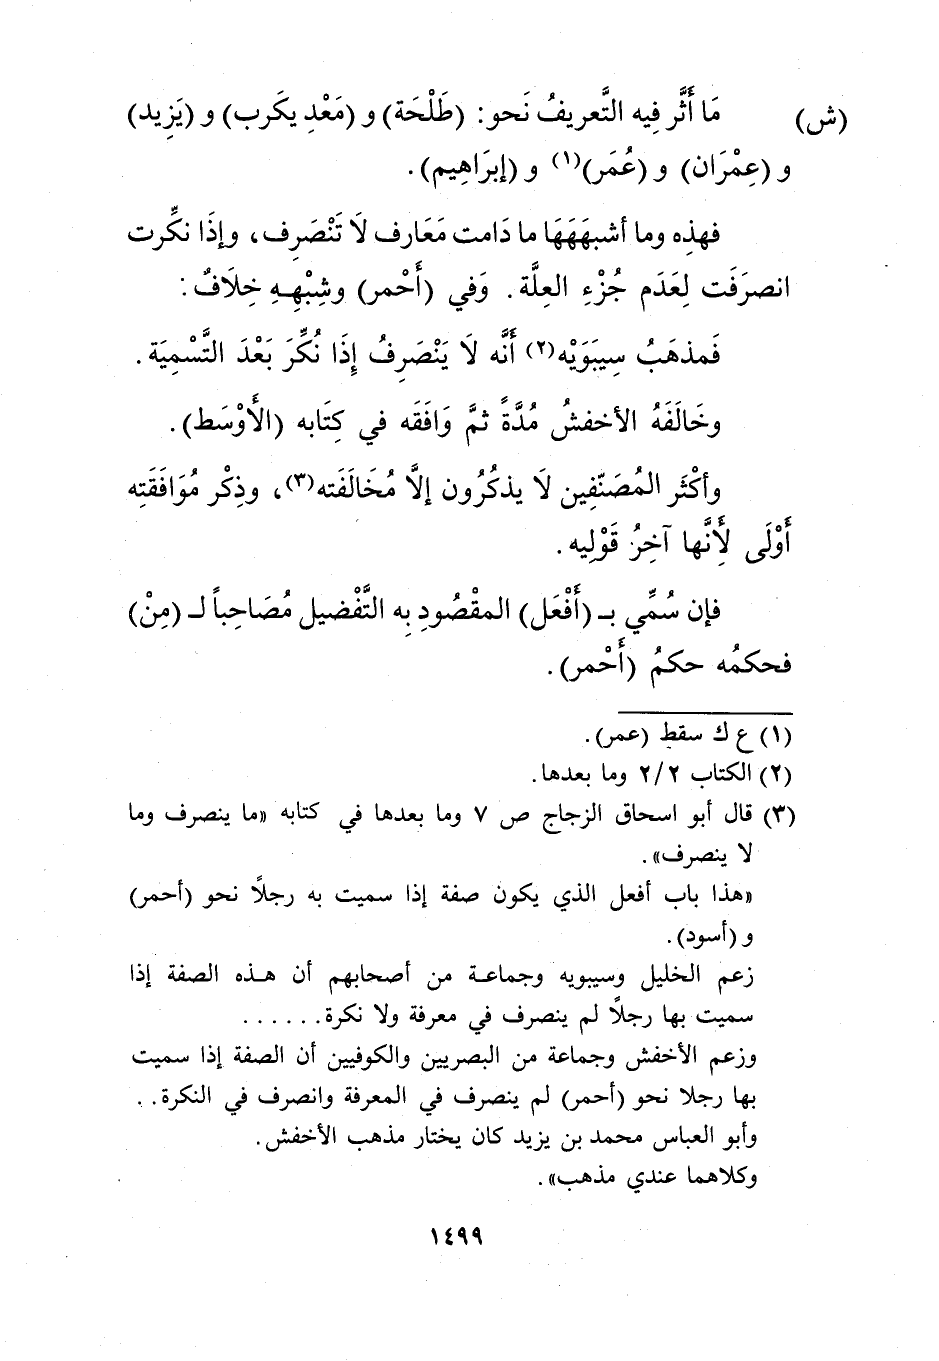 (ش) مَا أَثَّر فِيه التَّعريفُ نَحو: (طَلْحَة) و (مَعْدِ يكَرب) و (يَزِيد)
و (عِمْرَان) و (عُمَر)(١) و (إبرَاهِيم).
فهذِه وما أشبهَهَهَا ما دَامت مَعَارف لَا تَنْصَرِف، وإذَا نكِّرت
انصرَفَت لِعَدَم جُزْءِ العِلَّة. وَفي (أَحْمر) وشِبْهِهِ خِلَافٌ:
فَمذهَبُ سِيبَوَيْه(٢) أَنَّه لَا يَنْصَرِفُ إِذَا نُكِّرَ بَعْدَ التَّسْمِيَة.
وخَالَفَهُ الأخفشُ مُدَّةً ثمَّ وَافَقَه في كِتَابه (الأَوْسَط).
وأكْثَر المُصَنّفِين لَا يذكُرُون إلَّا مُخَالَفَته(٣)، وذِكْر مُوَافَقَتِه
أَوْلَى لِأَنَّها آخِرُ قَوْلِيه.
فإن سُمِّي بـ (أَفْعَل) المقْصُودِ بِه التَّفْضيل مُصَاحِباً لـ (مِنْ)
فحكمُه حكمُ (أَحْمر).
(١) ع ك سقط (عمر).
(٢) الكتاب ٢/٢ وما بعدها.
(٣) قال أبو اسحاق الزجاج ص ٧ وما بعدها في كتابه «ما ينصرف وما
لا ينصرف».
«هذا باب أفعل الذي يكون صفة إذا سميت به رجلاً نحو (أحمر)
و (أسود).
زعم الخليل وسيبويه وجماعة من أصحابهم أن هذه الصفة إذا
سميت بها رجلاً لم ينصرف في معرفة ولا نكرة......
وزعم الأخفش وجماعة من البصريين والكوفيين أن الصفة إذا سميت
بها رجلا نحو (أحمر) لم ينصرف في المعرفة وانصرف في النكرة..
وأبو العباس محمد بن يزيد كان يختار مذهب الأخفش.
وكلاهما عندي مذهب».
١٤٩٩